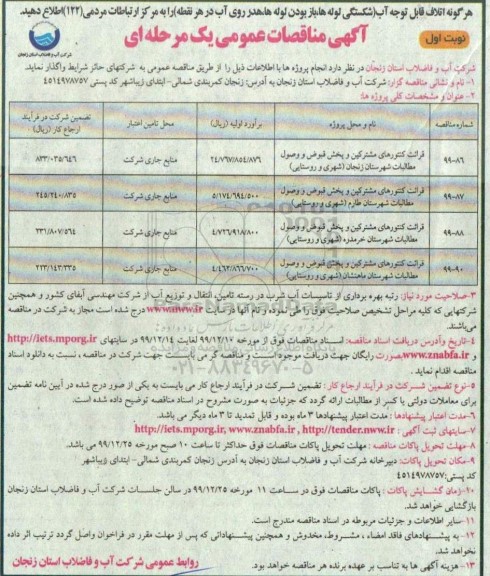 هرگونه اتلاف قابل توجه آب(شکستگی لوله ها،باز بودن لوله ها،هدر روی آب در هر نقطه)را به مرکز ارتباطات مردمی(۱۲۲)اطلاع دهید.
نوبت اول
آگهی مناقصات عمومی یک مرحله ای
شرکت آب و فاضلاب استان زنجان
شرکت آب و فاضلاب استان زنجان در نظر دارد انجام پروژه ها با اطلاعات ذیل را از طریق مناقصه عمومی به شرکتهای حائز شرایط واگذار نماید.
۱- نام و نشانی مناقصه گزار: شرکت آب و فاضلاب استان زنجان به آدرس: زنجان کمربندی شمالی- ابتدای زیباشهر کد پستی ۴۵۱۴۹۷۸۷۵۷
۲- عنوان و مشخصات کلی پروژه ها:
شماره مناقصه
نام و محل پروژه
برآورد اولیه (ریال)
محل تامین اعتبار
تضمین شرکت در فرآیند ارجاع کار (ریال)
۹۹-۸۶
قرائت کنتورهای مشترکین و پخش قبوض و وصول مطالبات شهرستان زنجان (شهری و روستایی)
۲۴/۷۶۷/۸۵۴/۸۷۶
منابع جاری شرکت
۸۳۳/۰۳۵/۶۴۶
۹۹-۸۷
قرائت کنتورهای مشترکین و پخش قبوض و وصول مطالبات شهرستان طارم (شهری و روستایی)
۵/۱۷۴/۶۹۴/۵۰۰
منابع جاری شرکت
۲۴۵/۲۴۰/۸۳۵
۹۹-۸۸
قرائت کنتورهای مشترکین و پخش قبوض و وصول مطالبات شهرستان خرمدره (شهری و روستایی)
۴/۷۲۶/۹۱۸/۸۰۰
منابع جاری شرکت
۲۳۱/۸۰۷/۵۶۴
۹۹-۹۰
قرائت کنتورهای مشترکین و پخش قبوض و وصول مطالبات شهرستان ماهنشان (شهری و روستایی)
۴/۴۶۲/۸۶۶/۷۰۰
منابع جاری شرکت
۲۲۳/۱۴۳/۳۳۵
۳-صلاحیت مورد نیاز: رتبه بهره برداری از تاسیسات آب شرب در رسته تامین، انتقال و توزیع آب از شرکت مهندسی آبفای کشور و همچنین
شرکتهایی که کلیه مراحل تشخیص صلاحیت فوق را طی نموده و نام آنها در سایت www.nww.ir درج شده است مجاز به شرکت در مناقصه
می‌باشند.
۴-تاریخ وآدرس دریافت اسناد مناقصه: اسناد مناقصات فوق از مورخه ۹۹/۱۲/۱۰ لغایت ۹۹/۱۲/۱۴ در سایتهای http://iets.mporg.ir
و www.znabfa.ir بصورت رایگان جهت دریافت موجود است و مناقصه گر می بایست جهت شرکت در مناقصه ، نسبت به دانلود اسناد
مناقصه اقدام نماید .
۵-نوع تضمین شرکت در فرآیند ارجاع کار : تضمین شرکت در فرآیند ارجاع کار می بایست به یکی از صور درج شده در آیین نامه تضمین
برای معاملات دولتی یا کسر از مطالبات ارائه گردد که جزئیات به صورت مشروح در اسناد مناقصه توضیح داده شده است.
۶-مدت اعتبار پیشنهادها : مدت اعتبار پیشنهادها ۳ ماه بوده و قابل تمدید تا ۳ ماه دیگر می باشد.
۷-سایتهای ثبت آگهی : http://iets.mporg.ir, www.znabfa.ir , http://tender.nww.ir
۸-مهلت تحویل پاکات مناقصه : مهلت تحویل پاکات مناقصات فوق حداکثر تا ساعت ۱۰ صبح مورخه ۹۹/۱۲/۲۵ می باشد.
۹-مکان تحویل پاکات: دبیرخانه شرکت آب و فاضلاب استان زنجان به آدرس زنجان کمربندی شمالی- ابتدای زیباشهر
کد پستی:۴۵۱۴۹۷۸۷۵۷
۱۰-زمان گشایش پاکات : پاکات مناقصات فوق در ساعت ۱۱ مورخه ۹۹/۱۲/۲۵ در سالن جلسات شرکت آب و فاضلاب استان زنجان
بازگشایی خواهد شد.
۱۱-سایر اطلاعات و جزئیات مربوطه در اسناد مناقصه مندرج است.
۱۲- به پیشنهادهای فاقد امضاء ، مشروط، مخدوش و همچنین پیشنهاداتی که پس از مهلت مقرر در فراخوان واصل گردد ترتیب اثر داده
نخواهد شد.
۱۳- هزینه آگهی ها به تناسب بر عهده برنده هر مناقصه خواهد بود.
روابط عمومی شرکت آب و فاضلاب استان زنجان
۰۲۱-۸۸۳۴۹۶۷۰-۵